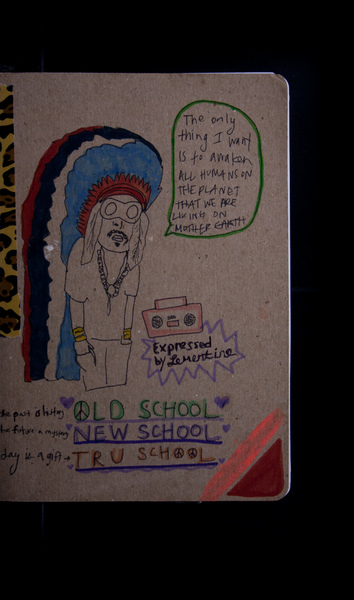 The only
thing I want
is to awaken
ALL HUMANS ON
THE PLANET
THAT WE ARE
LIVING ON
MOTHER EARTH
Expressed
by Lementine
the past is history
OLD SCHOOL
the future a mystery
NEW SCHOOL
day is a gift
TRU SCHOOL